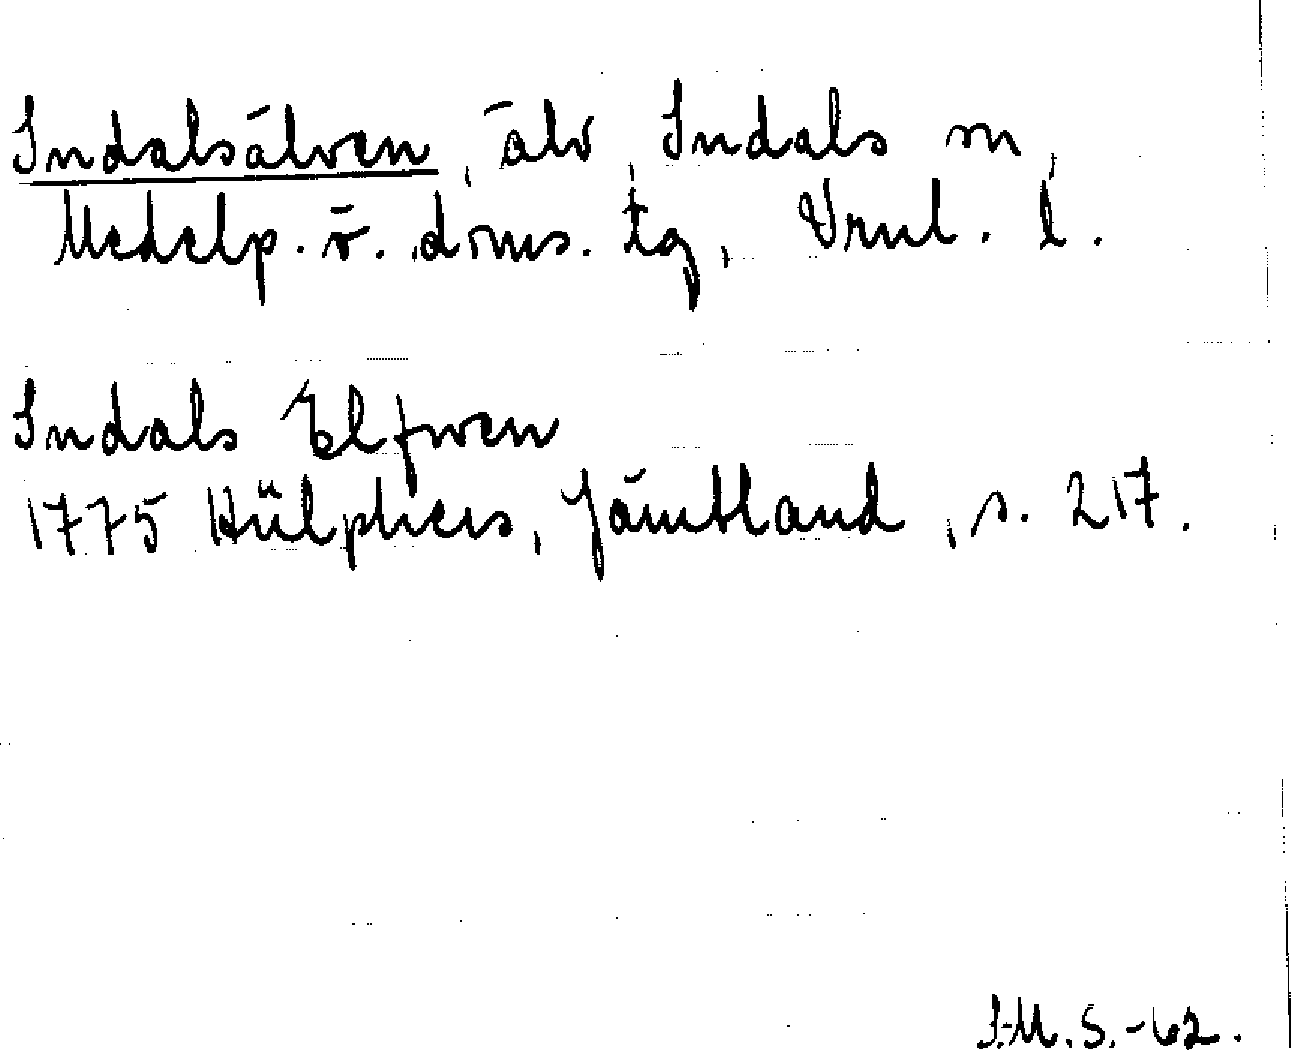 Indalsälven, älv, Indals sn,
Medelp. v. doms. tg, Vrnl. l.
Indals Elfwen
1775 Hülphers, Jämtland, s. 217.
I.M.S.-62.